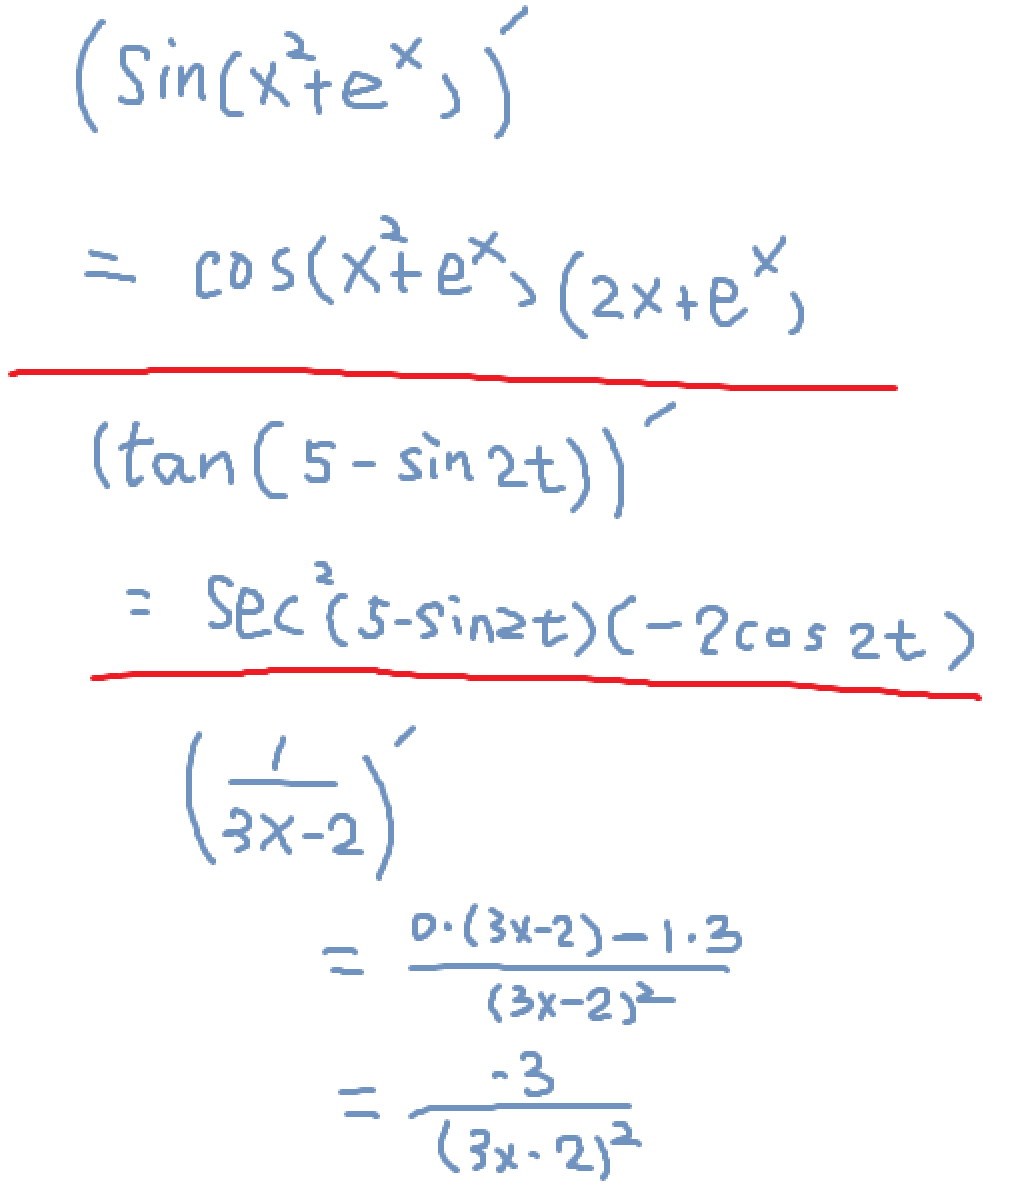 (sin(x²+eˣ))′
= cos(x²+eˣ)(2x+eˣ)
(tan(5-sin2t))′
= sec²(5-sin2t)(-2cos2t)
(1/(3x-2))′
= (0·(3x-2)-1·3)/(3x-2)²
= -3/(3x-2)²